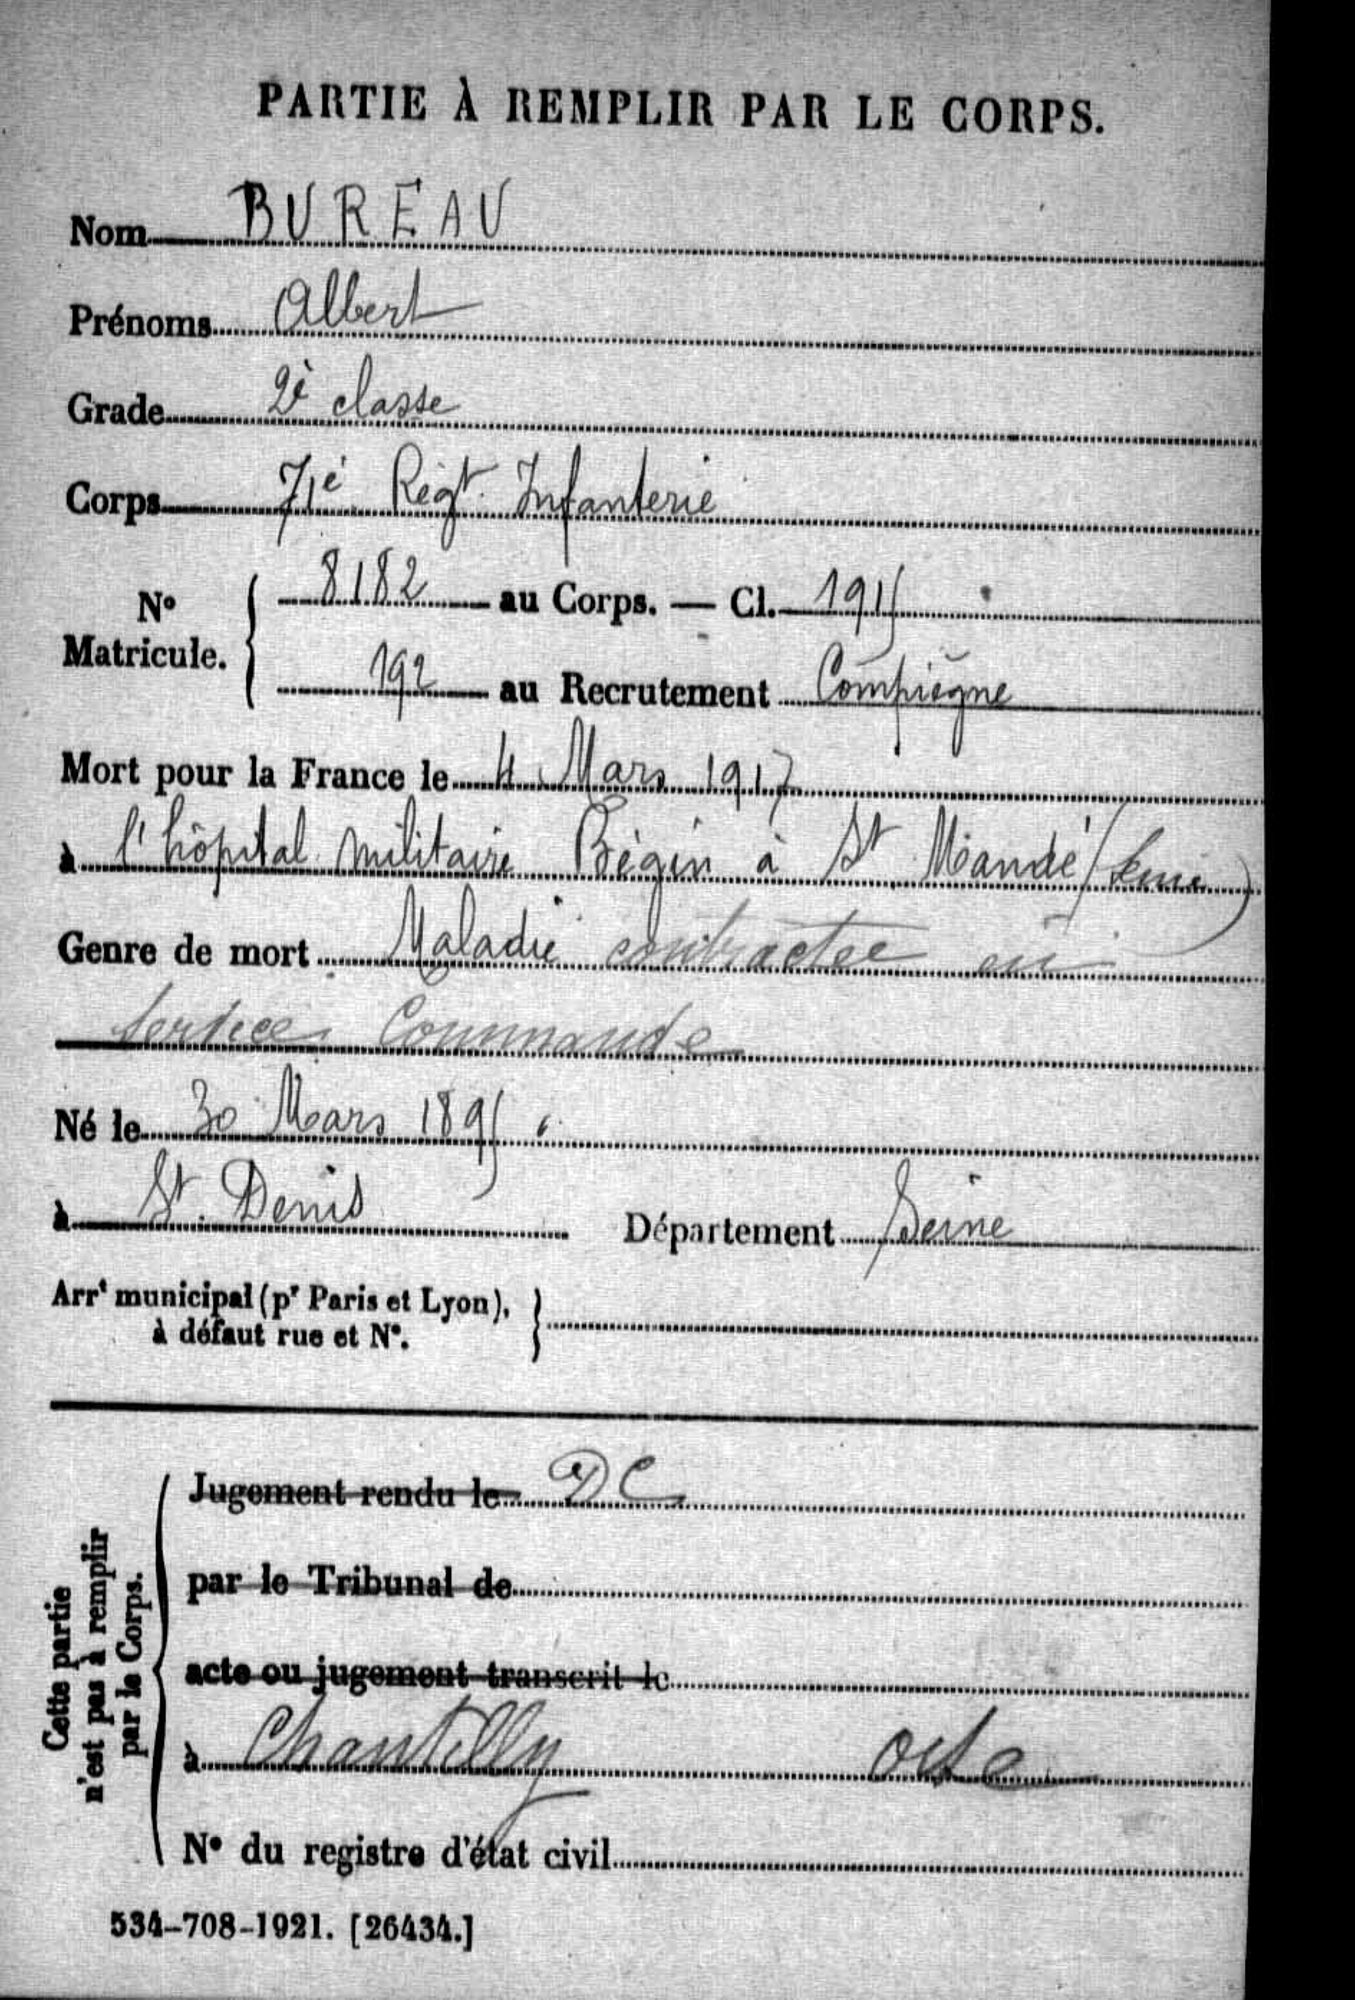 PARTIE À REMPLIR PAR LE CORPS.
Nom BUREAU
Prénoms Albert
Grade 2è classe
Corps 71è Régt Infanterie
N° Matricule. 8182 au Corps. — Cl. 1915
192 au Recrutement Compiègne
Mort pour la France le 4 Mars 1917
à l'hôpital militaire Bégin à St Mandé (Seine)
Genre de mort Maladie contractée en
service Commandé
Né le 30 Mars 1895
à St. Denis Département Seine
Arrt municipal (pr Paris et Lyon),
à défaut rue et N°.
Cette partie
n'est pas à remplir
par le Corps.
Jugement rendu le DC
par le Tribunal de
acte ou jugement transcrit le
à Chantilly Oise
N° du registre d'état civil
534-708-1921. [26434.]